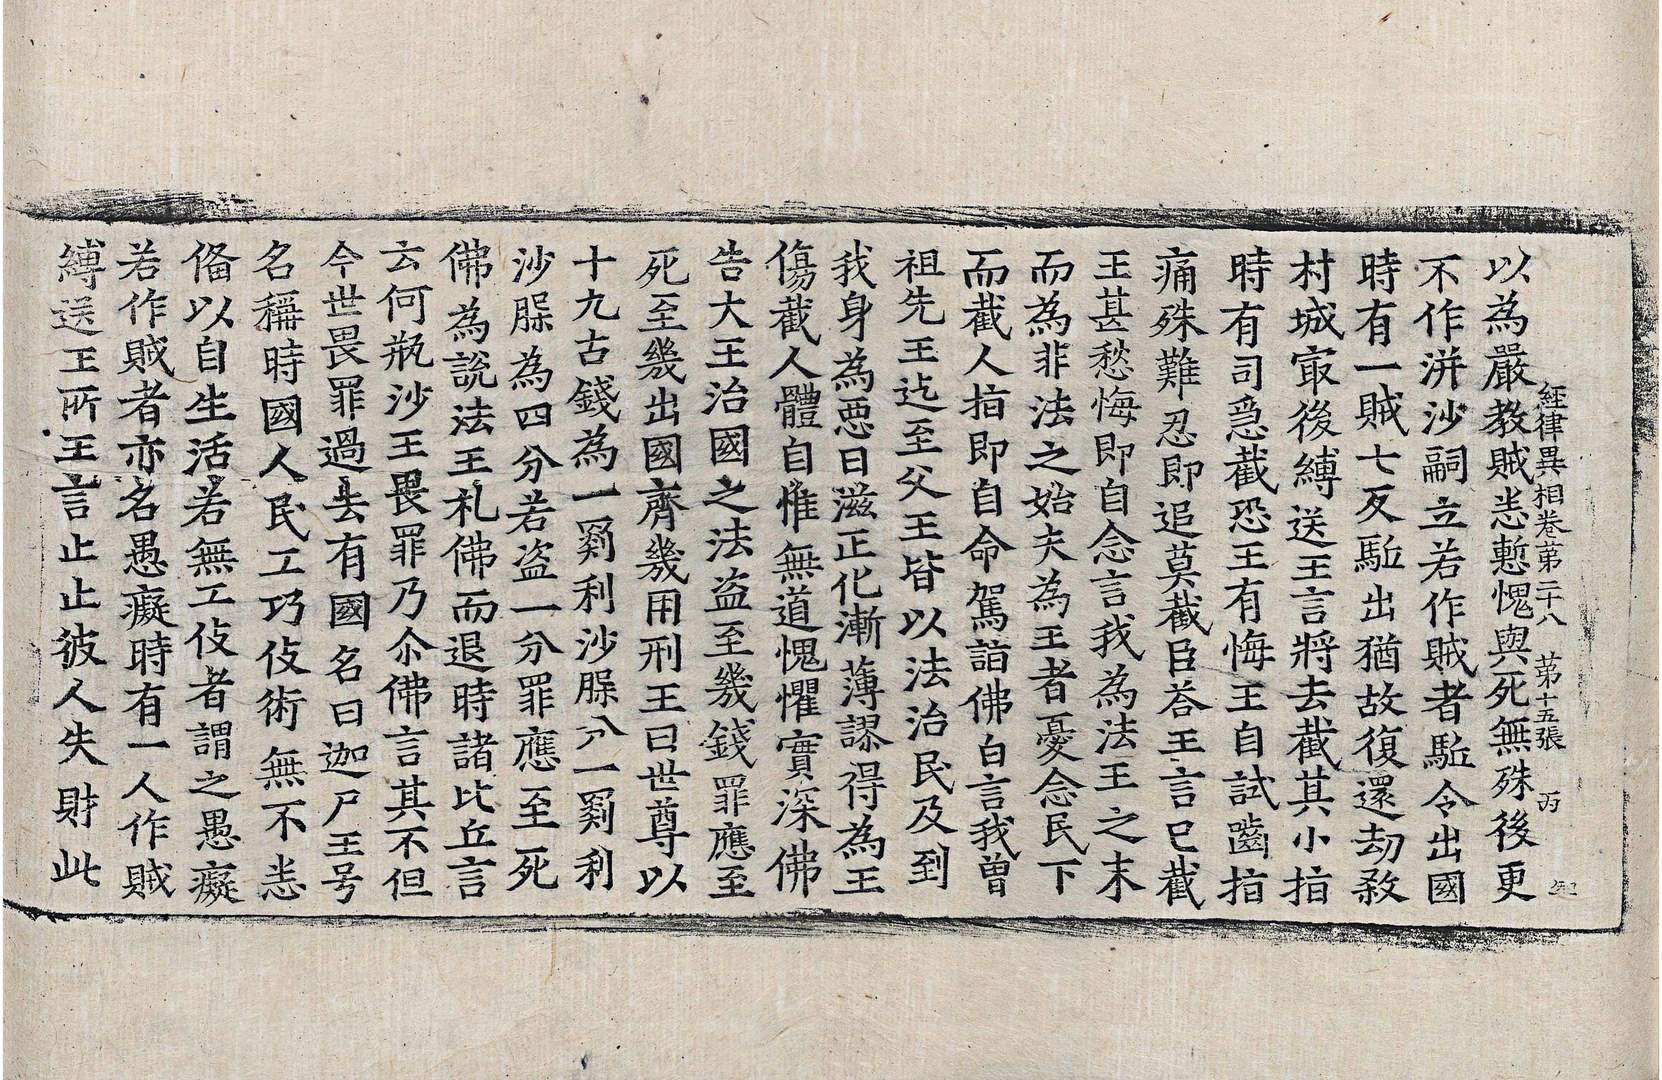 經律異相卷第二十八　第十五張　丙
以為嚴教賊恚慙愧與死無殊後更
不作洴沙嗣立若作賊者駈令出國
時有一賊七反駈出猶故復還劫敎
村城㝡後縛送王言將去截其小指
時有司急截恐王有悔王自試嚙指
痛殊難忍即追莫截臣荅王言已截
王甚愁悔即自念言我為法王之末
而為非法之始夫為王者憂念民下
而截人指即自命駕詣佛白言我曾
祖先王迄至父王皆以法治民及到
我身為惡日滋正化漸薄謬得為王
傷截人體自惟無道愧懼實深佛
告大王治國之法盜至幾錢罪應至
死至幾出國齊幾用刑王曰世尊以
十九古錢為一罽利沙脲八一罽利
沙脲為四分若盜一分罪應至死
佛為說法王礼佛而退時諸比丘言
云何瓶沙王畏罪乃尒佛言其不但
今世畏罪過去有國名曰迦尸王号
名稱時國人民工巧伎術無不恚
俻以自生活若無工伎者謂之愚癡
若作賊者亦名愚癡時有一人作賊
縛送王所王言止止彼人失財此